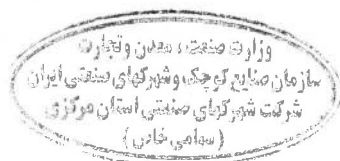 وزارت صنعت ، معدن و تجارت
سازمان صنایع کوچک و شهرکهای صنعتی ایران
شرکت شهرکهای صنعتی استان مرکزی
( سهامی خاص )